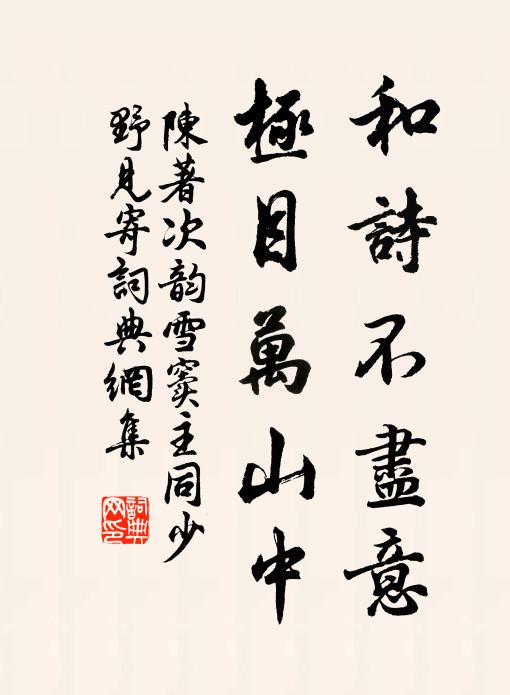 和詩不盡意
極目萬山中
陳著次韵雪竇主同少
野見寄詞典網集
詞典
网印